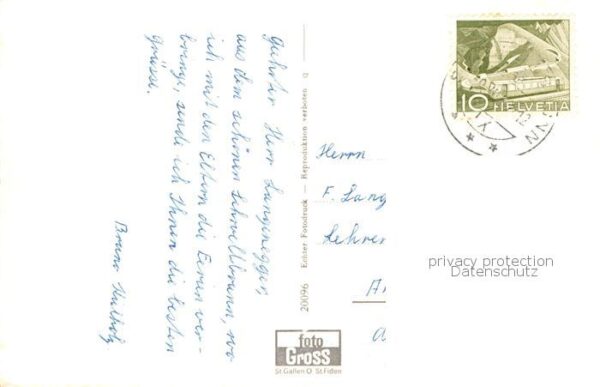 Geehrter Herr Langenegger,
aus dem schönen Schwellbrunn, wo
ich mit den Eltern die Ferien ver-
bringe, sende ich Ihnen die besten
Grüsse.
Bruno
20096 Echter Fotodruck — Reproduktion verboten
foto
GROSS
St Gallen O St Fiden
Herrn
F. Lang
Lehrer
10 HELVETIA
privacy protection
Datenschutz